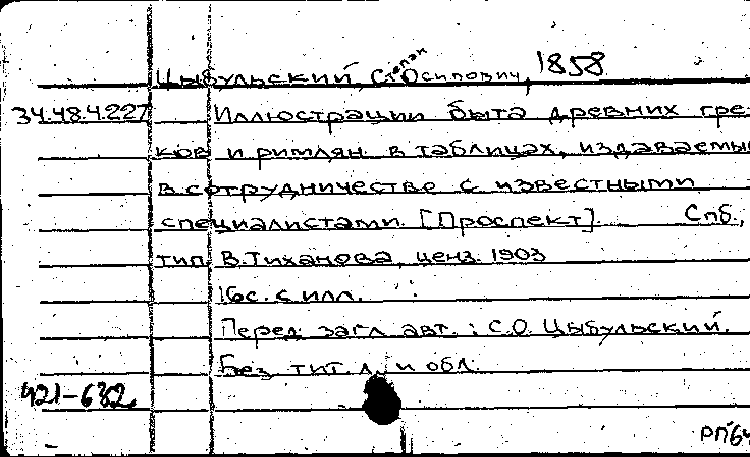 Цыбульский, Степан Осипович, 1858
34.48.4.227 Иллюстрации быта древних гре-
ков и римлян в таблицах, издаваемы
в сотрудничестве с известными
специалистами. [Проспект]. Спб.,
тип. В. Тиханова, ценз. 1903
16 с. с илл.
Перед загл. авт.: С.О. Цыбульский.
Без тит. л. и обл.
421-632
РП64